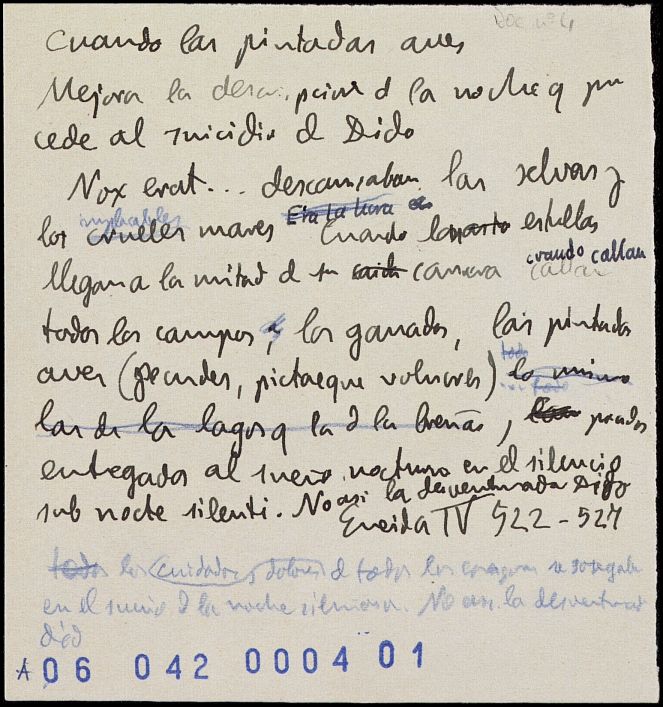 Doc nº 4
Cuando las pintadas aves
Mejora la descripcion d la noche q pre
cede al suicidio d Dido
Nox erat... descansaban las selvas y
implacables
los crueles mares Era la hora en Cuando las astro estrellas
llegan a la mitad d su caida carrera cuando callan callan
todos los campos, los ganados, las pintadas
aves (pecudes, pictaeque volucres) lo mismo
todo
las de los lagos q la d la breñas, prados
entregados al sueño nocturno en el silencio
sub nocte silenti. No asi la desventurada Dido
Eneida IV 522-527
todos los cuidados y dolores d todos los corazones se sosegaban
en el sueño d la noche silenciosa. No asi la desventurada
dido
A 06 042 0004 01